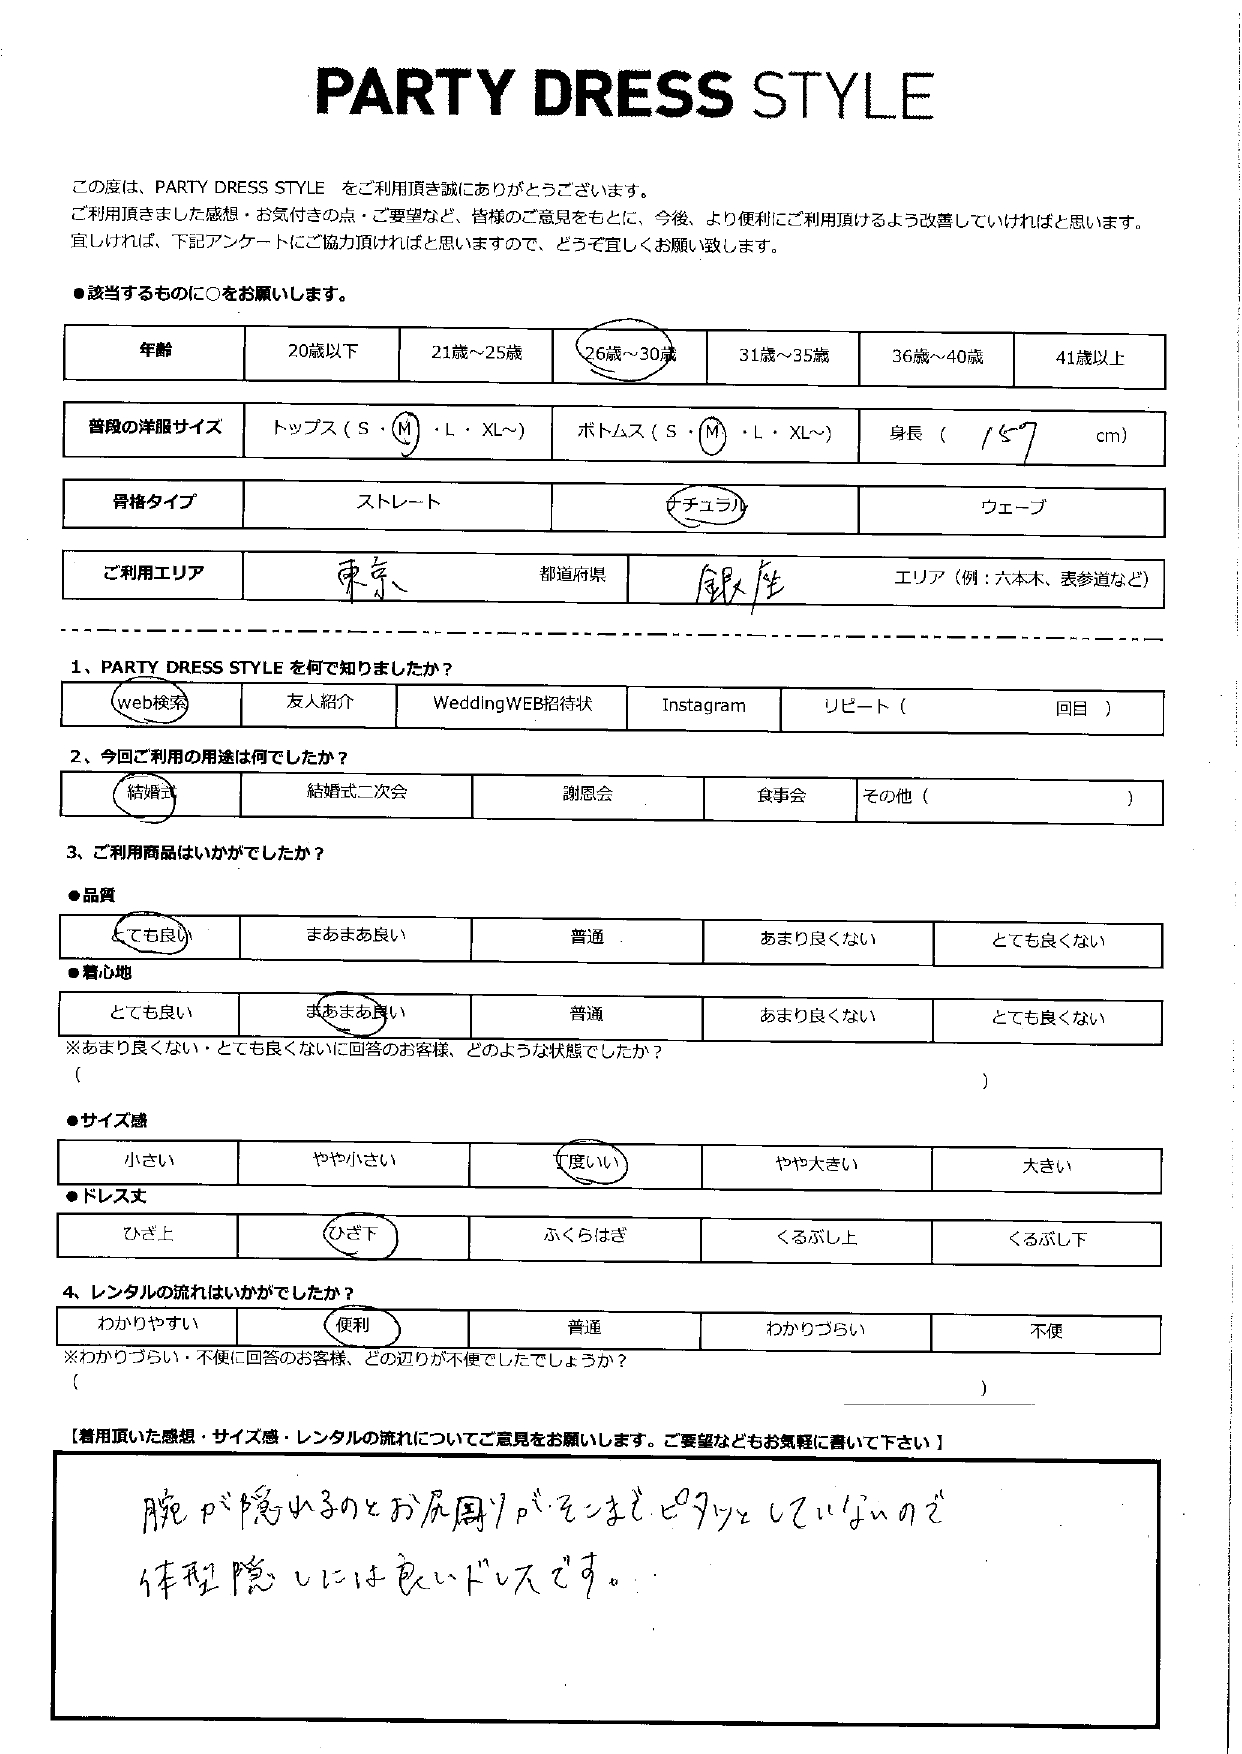 PARTY DRESS STYLE
この度は、PARTY DRESS STYLE をご利用頂き誠にありがとうございます。
ご利用頂きました感想・お気付きの点・ご要望など、皆様のご意見をもとに、今後、より便利にご利用頂けるよう改善していければと思います。
宜しければ、下記アンケートにご協力頂ければと思いますので、どうぞ宜しくお願い致します。
●該当するものに○をお願いします。
年齢 20歳以下 21歳～25歳 26歳～30歳 31歳～35歳 36歳～40歳 41歳以上
普段の洋服サイズ トップス ( S ・ M ・ L ・ XL～) ボトムス ( S ・ M ・ L ・ XL～) 身長 ( 157 cm)
骨格タイプ ストレート ナチュラル ウェーブ
ご利用エリア 東京 都道府県 銀座 エリア（例：六本木、表参道など）
1、PARTY DRESS STYLE を何で知りましたか？
web検索 友人紹介 WeddingWEB招待状 Instagram リピート ( 回目 )
2、今回ご利用の用途は何でしたか？
結婚式 結婚式二次会 謝恩会 食事会 その他 ( )
3、ご利用商品はいかがでしたか？
●品質
とても良い まあまあ良い 普通 あまり良くない とても良くない
●着心地
とても良い まあまあ良い 普通 あまり良くない とても良くない
※あまり良くない・とても良くないに回答のお客様、どのような状態でしたか？
( )
●サイズ感
小さい やや小さい 丁度いい やや大きい 大きい
●ドレス丈
ひざ上 ひざ下 ふくらはぎ くるぶし上 くるぶし下
4、レンタルの流れはいかがでしたか？
わかりやすい 便利 普通 わかりづらい 不便
※わかりづらい・不便に回答のお客様、どの辺りが不便でしたでしょうか？
( )
【着用頂いた感想・サイズ感・レンタルの流れについてご意見をお願いします。ご要望などもお気軽に書いて下さい】
腕が隠れるのとお尻周りがそこまでピタッとしていないので
体型隠しには良いドレスです。